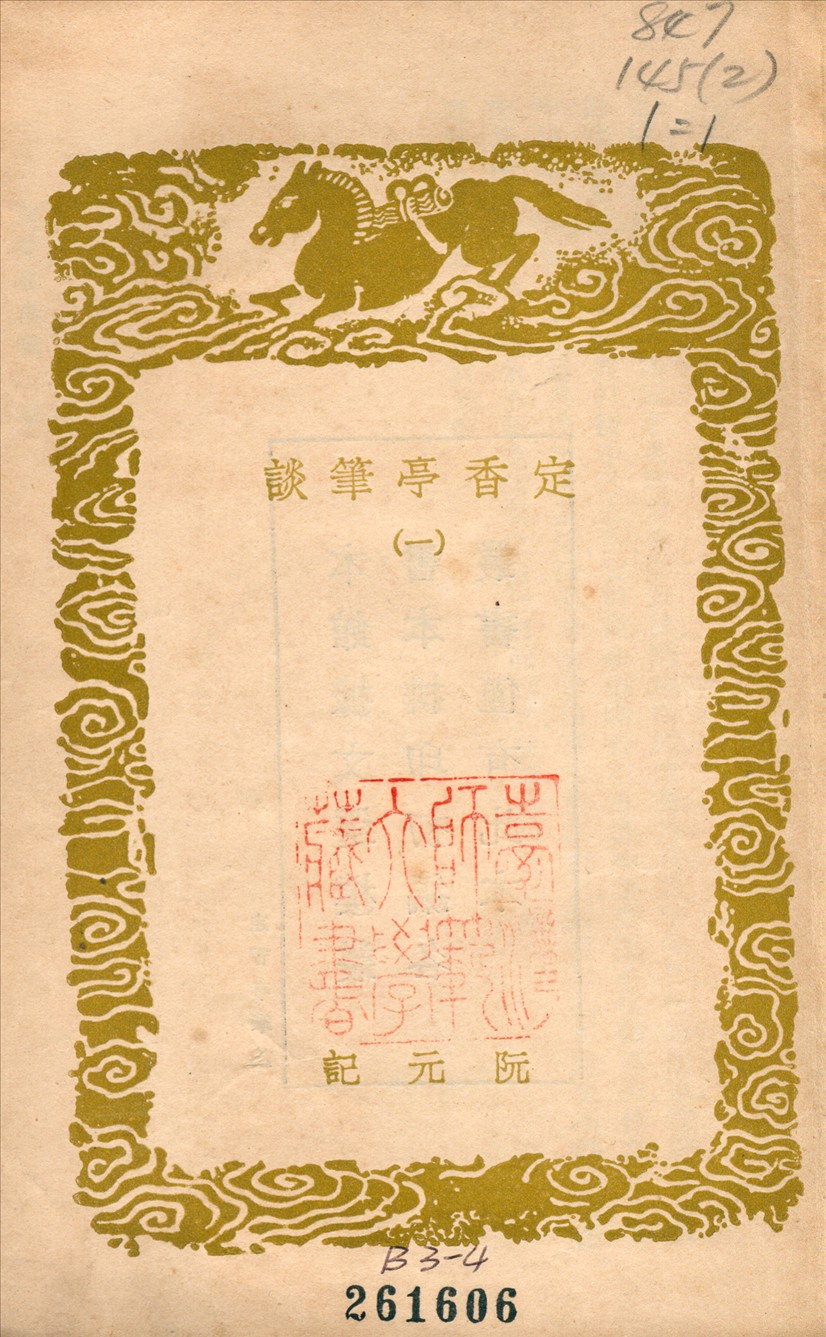 847
145(2)
1=1
定香亭筆談
(一)
臺灣
師範
大學
藏書
阮元記
B3-4
261606